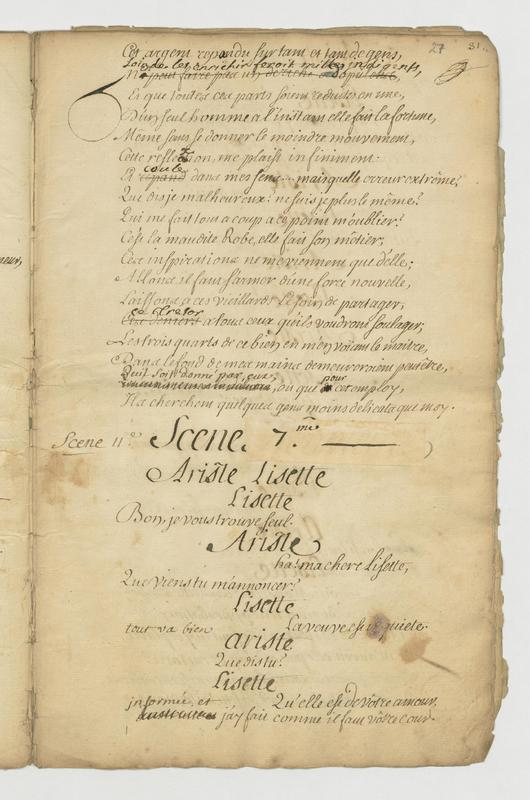 27 31.
Cet argent repandu sur tant et tant de gens,
Loin de les enrichir feroit mille indigents,
N
Et que toutes ces parts soient reduites en une,
D'un seul homme a l'instant elle fait la fortune,
Même sans se donner le moindre mouvement,
Cette reflexion, me plaist infiniment.
coule
Et repand dans mes sens... mais quelle erreur extrême?
Que dis je malheureux? ne suis je plus le même?
Qui me fait tout a coup a ce point m'oublier?
C'est la maudite Robe, elle fait son métier,
Ces inspirations ne me viennent que d'elle;
Allons il faut s'armer d'une force nouvelle,
Laissons a ces vieillards le soin de partager,
ce tresor
a tous ceux qu'ils voudront soulager,
Les trois quarts de ce bien en m'en voiant le maitre,
Dans le fond de mes mains demeureroient peutêtre,
Qu'il soit donné par eux,
pour
ou que cet employ,
Ils cherchent quelques gens moins delicats que moy.
Scene 11e Scene. 7.me
Ariste Lisette
Lisette
Bon, je vous trouve seul.
Ariste
ha! ma chere Lisette,
Que viens tu m'annoncer?
Lisette
tout va bien La veuve est inquiete.
ariste
Que dis tu?
Lisette
informée, et Qu'elle est de vôtre amour,
j'ay fait comme il faut vôtre cour.